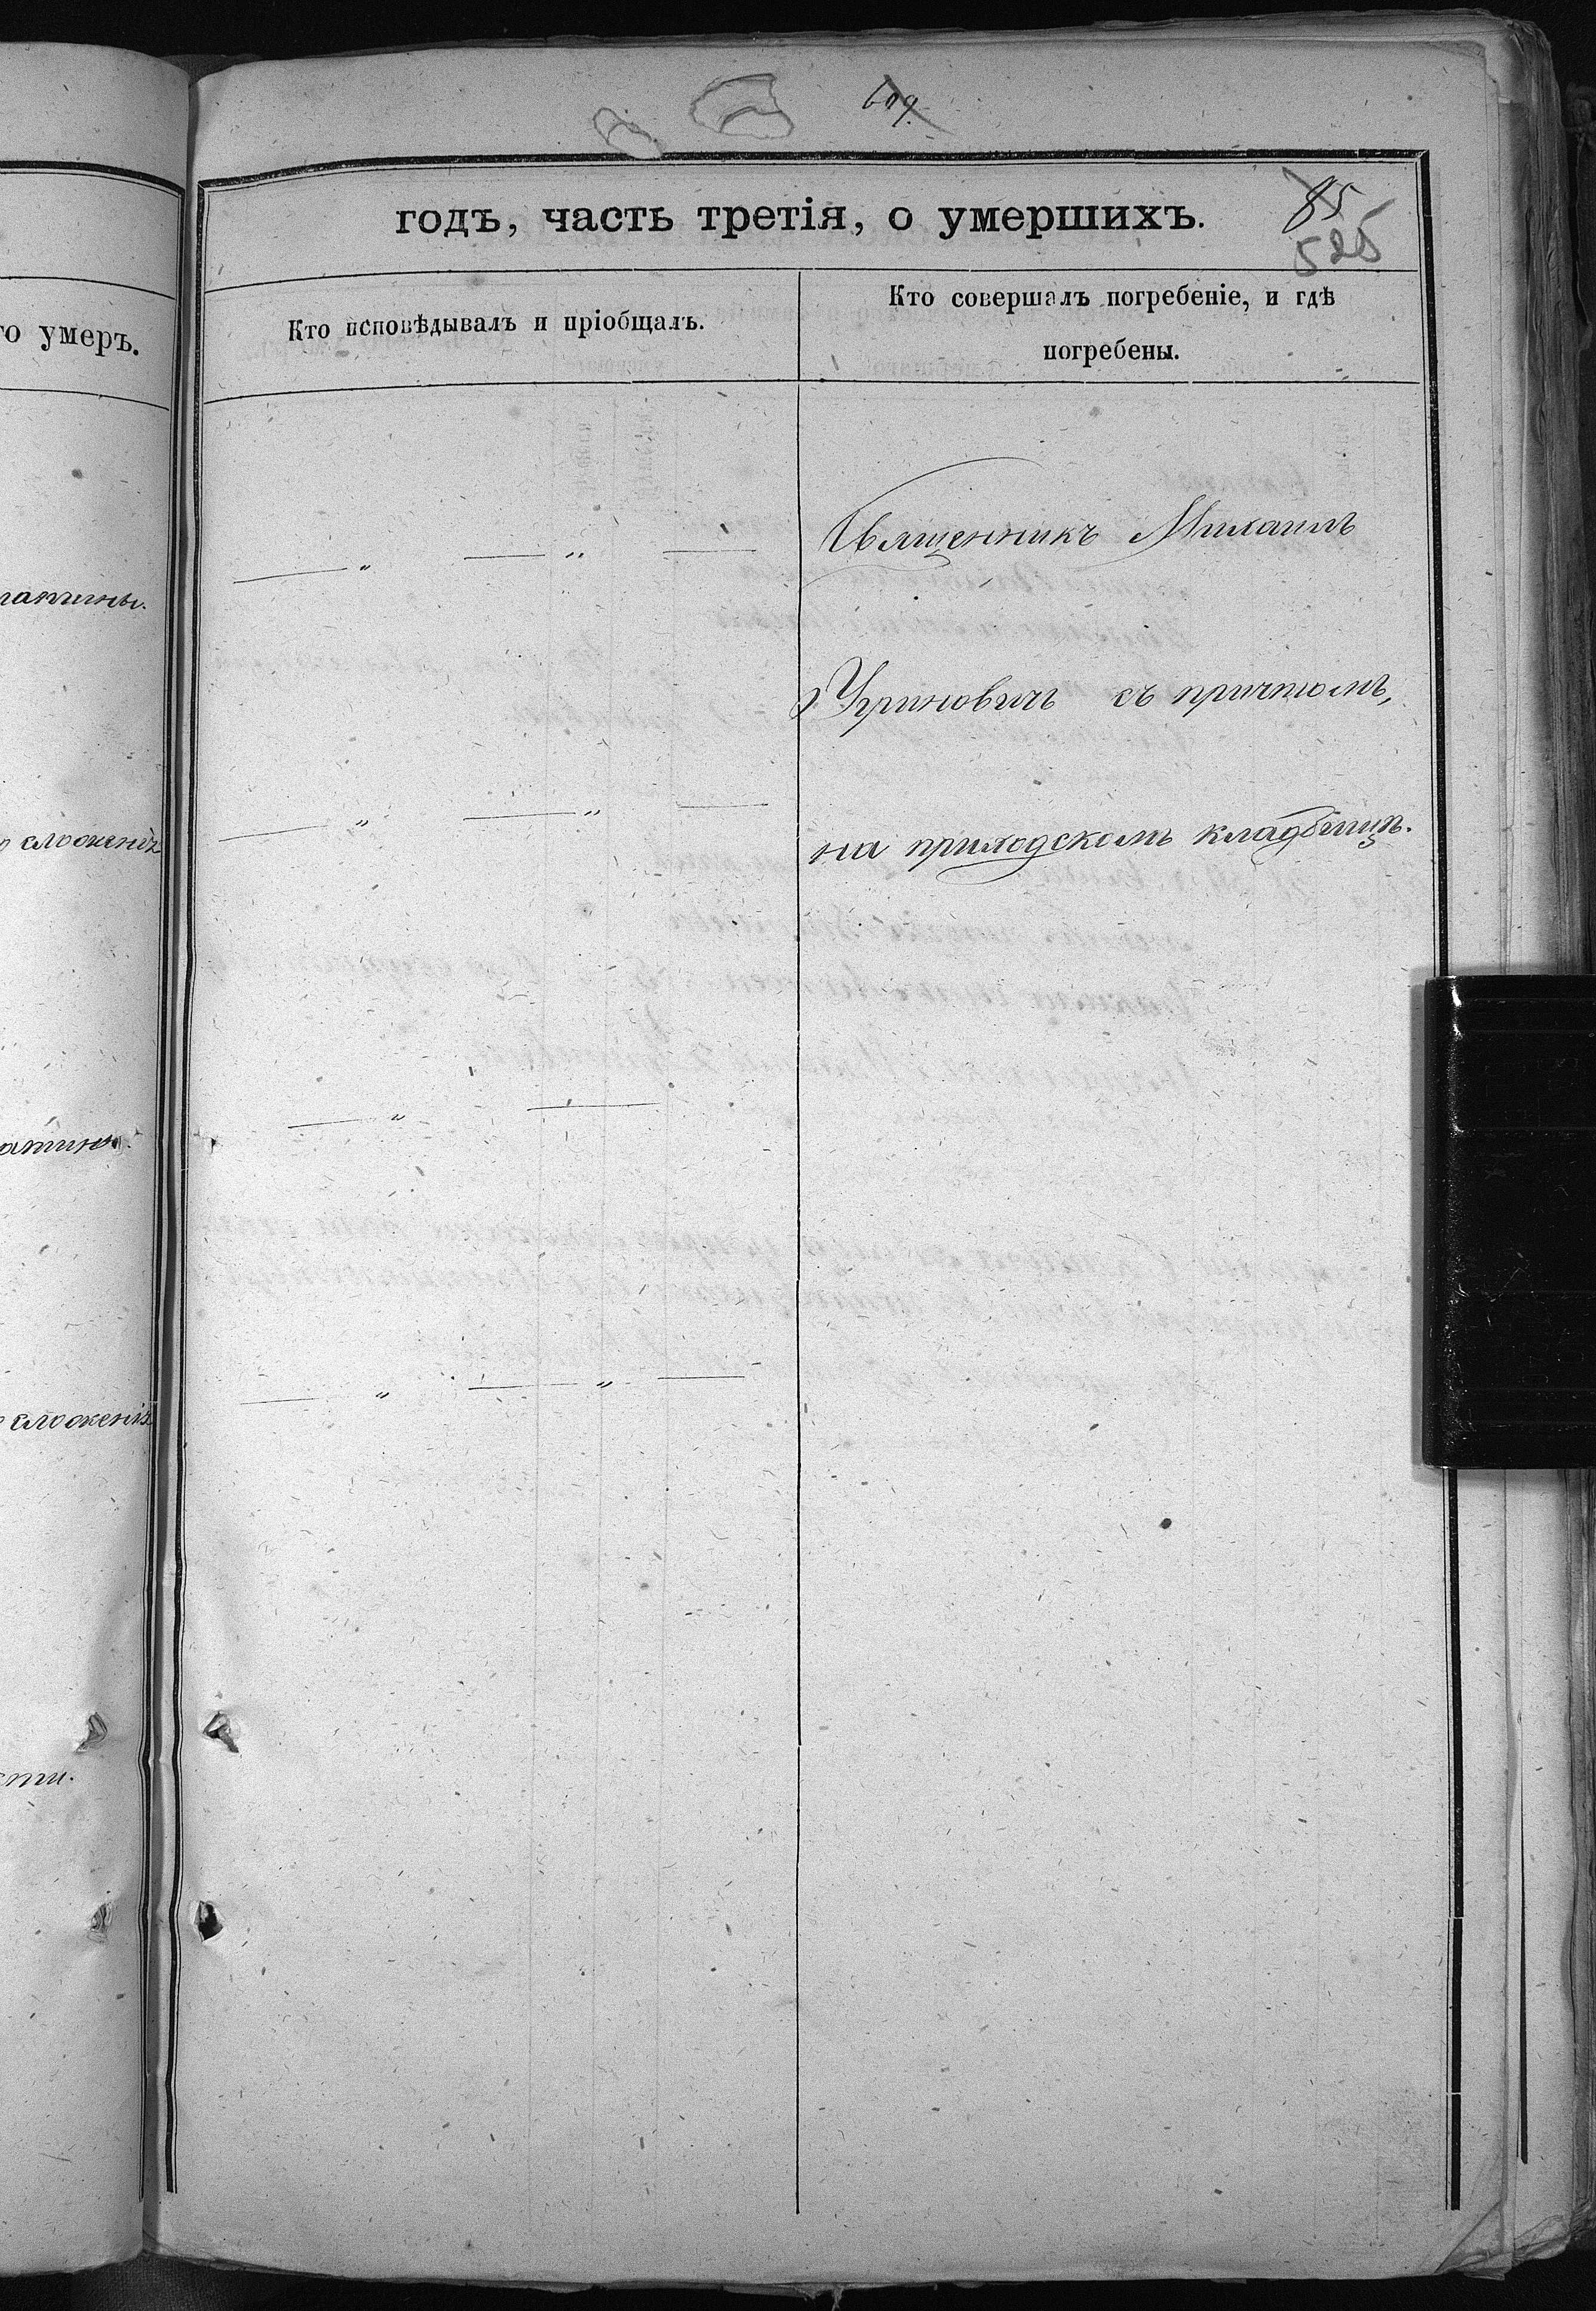 609.
годъ, часть третія, о умершихъ.
85
525
го умеръ.
Кто исповѣдывалъ и пріобщалъ.
Кто совершалъ погребеніе, и гдѣ
погребены.
Священникъ Михаилъ
— „ — „ —
Угриновичъ съ причтомъ,
— „ — „ —
на приходскомъ кладбищѣ.
— „ —
— „ — „ —